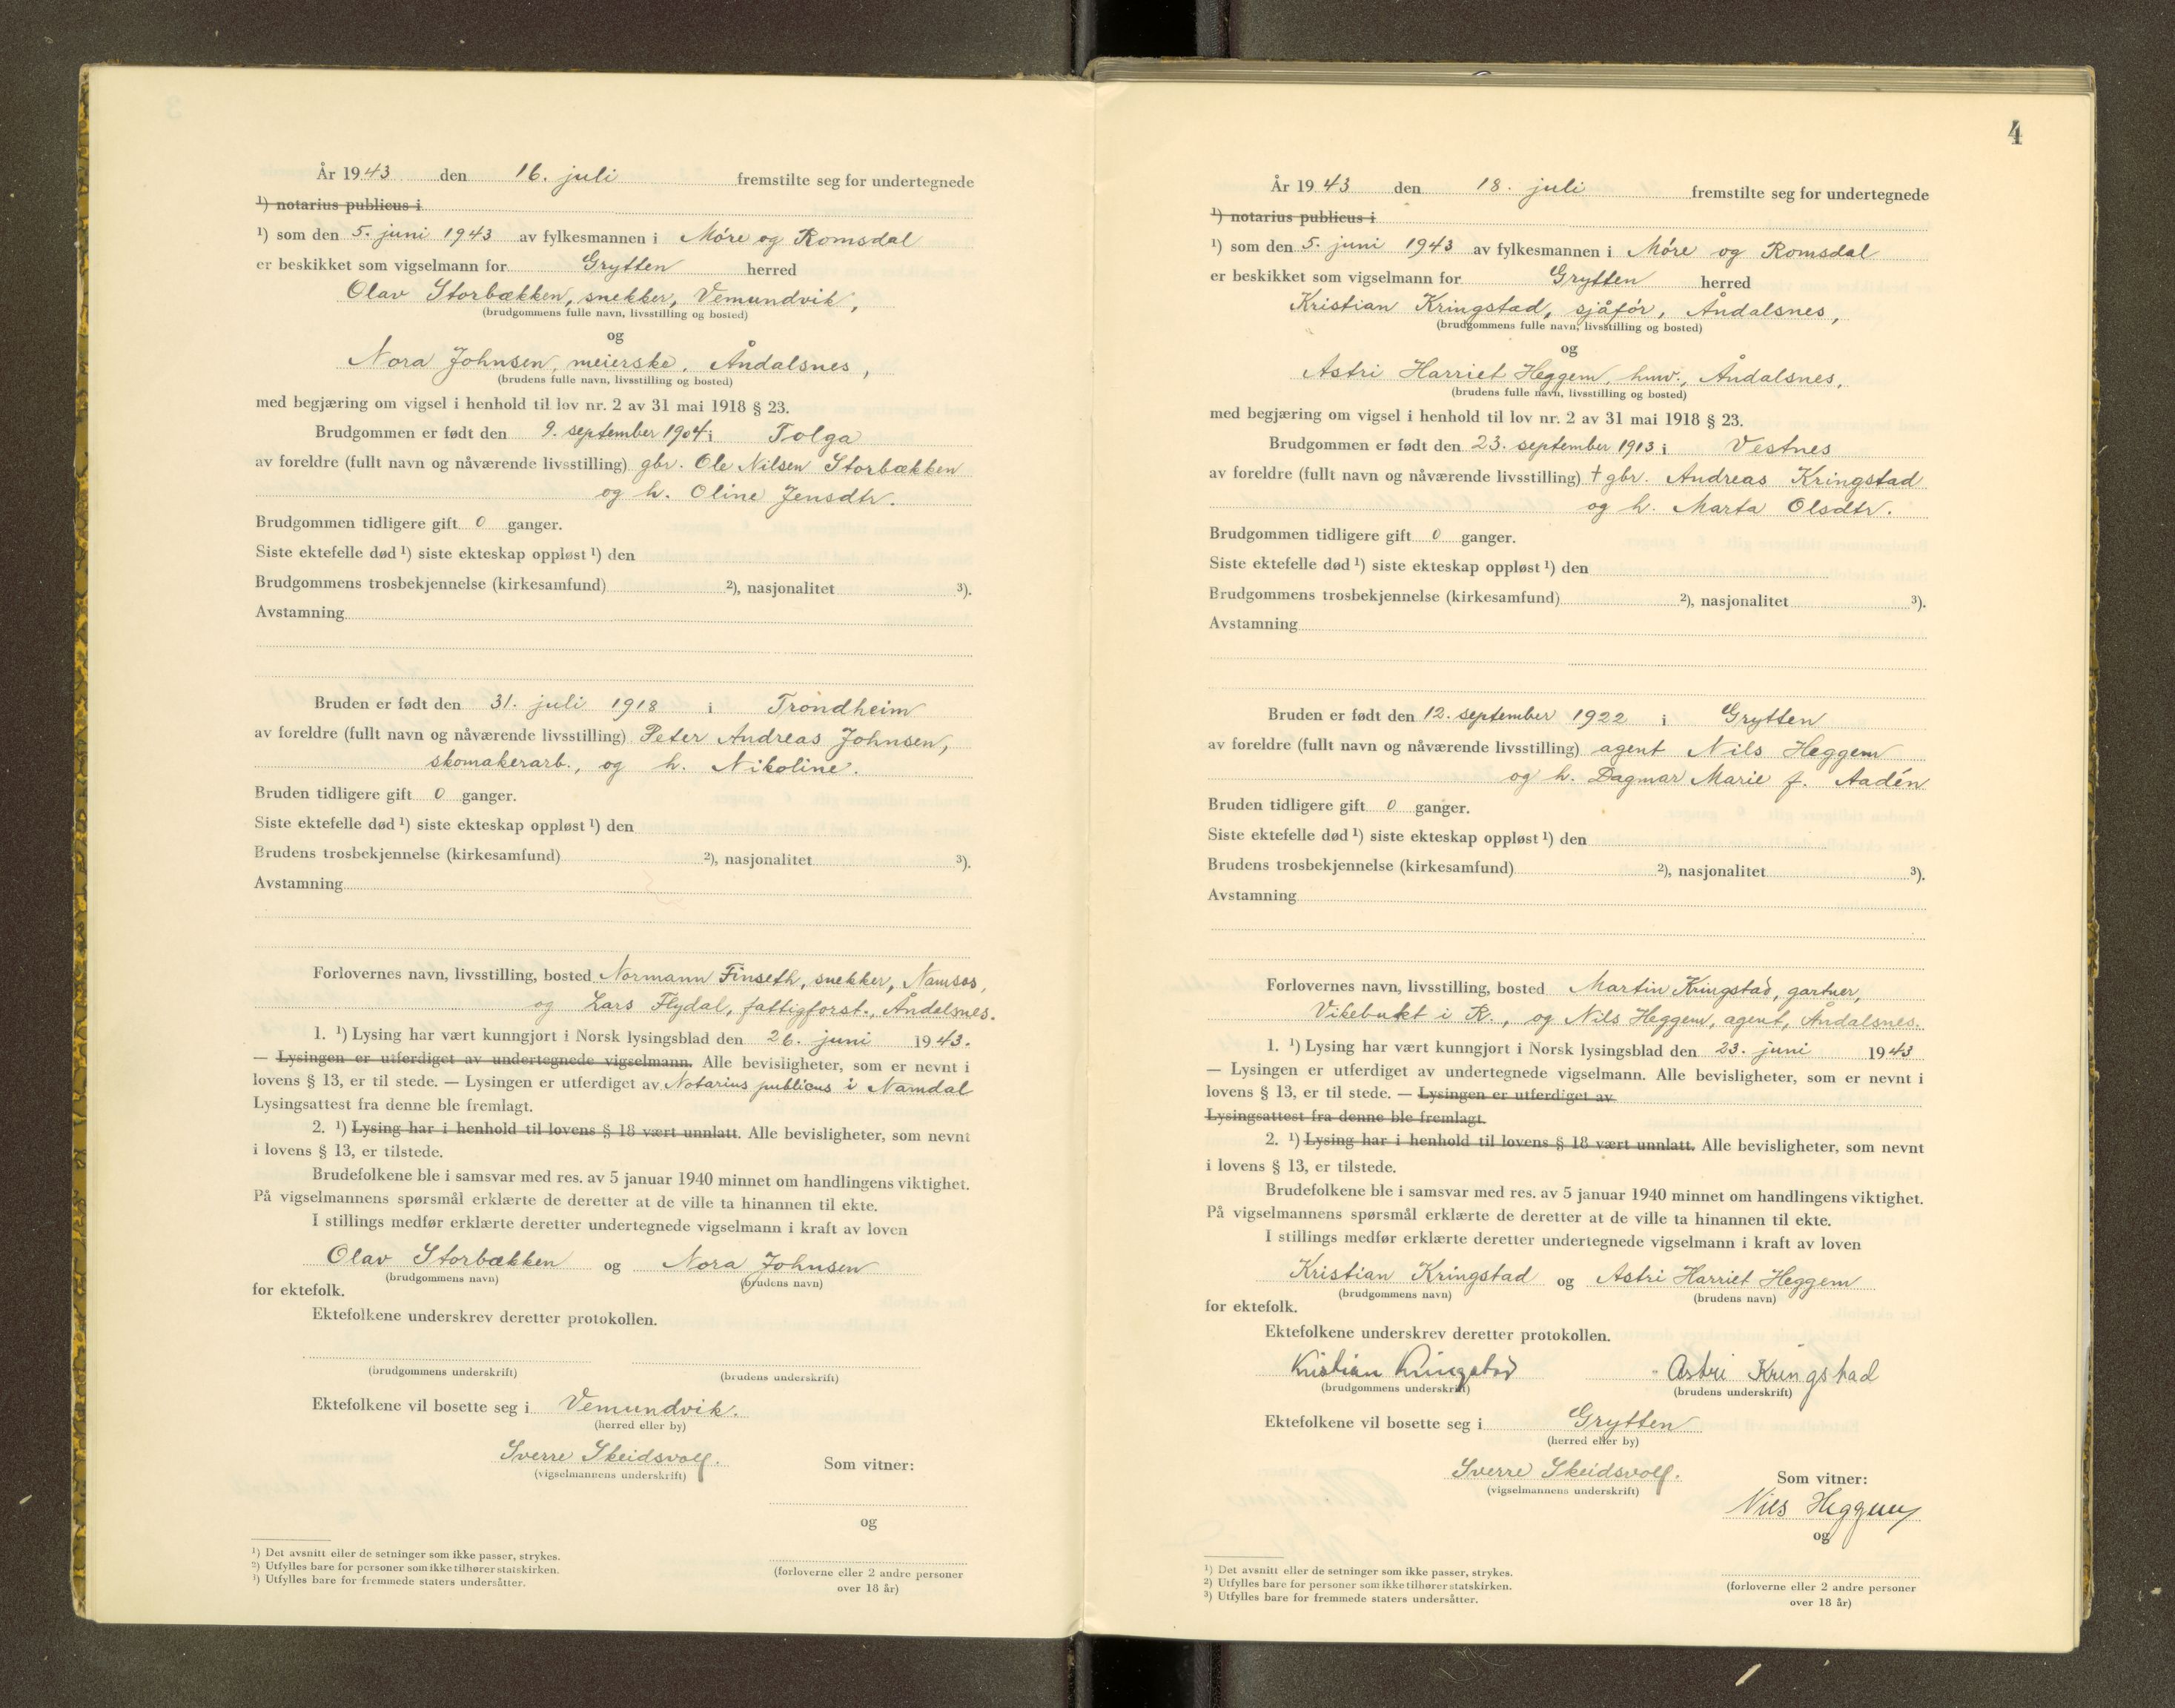 År 1943 den 16. juli fremstilte seg for undertegnede
¹) notarius publicus i
¹) som den 5. juni 1943 av fylkesmannen i Møre og Romsdal
er beskikket som vigselmann for Grytten herred
Olav Storbækken, snekker, Vemundvik,
(brudgommens fulle navn, livsstilling og bosted)
og
Nora Johnsen, meierske, Åndalsnes,
(brudens fulle navn, livsstilling og bosted)
med begjæring om vigsel i henhold til lov nr. 2 av 31 mai 1918 § 23.
Brudgommen er født den 9. september 1904 i Tolga
av foreldre (fullt navn og nåværende livsstilling) gbr. Ole Nilsen Storbækken
og h. Oline Jensdtr.
Brudgommen tidligere gift 0 ganger.
Siste ektefelle død ¹) siste ekteskap oppløst ¹) den
Brudgommens trosbekjennelse (kirkesamfund) ²), nasjonalitet ³).
Avstamning
Bruden er født den 31. juli 1918 i Trondheim
av foreldre (fullt navn og nåværende livsstilling) Peter Andreas Johnsen,
skomakerarb., og h. Nikoline.
Bruden tidligere gift 0 ganger.
Siste ektefelle død ¹) siste ekteskap oppløst ¹) den
Brudens trosbekjennelse (kirkesamfund) ²), nasjonalitet ³).
Avstamning
Forlovernes navn, livsstilling, bosted Normann Finseth, snekker, Namsos,
og Lars Flydal, fattigforst., Åndalsnes.
1. ¹) Lysing har vært kunngjort i Norsk lysingsblad den 26. juni 1943.
— Lysingen er utferdiget av undertegnede vigselmann. Alle bevisligheter, som er nevnt i
lovens § 13, er til stede. — Lysingen er utferdiget av Notarius publicus i Namdal
Lysingsattest fra denne ble fremlagt.
2. ¹) Lysing har i henhold til lovens § 18 vært unnlatt. Alle bevisligheter, som nevnt
i lovens § 13, er tilstede.
Brudefolkene ble i samsvar med res. av 5 januar 1940 minnet om handlingens viktighet.
På vigselmannens spørsmål erklærte de deretter at de ville ta hinannen til ekte.
I stillings medfør erklærte deretter undertegnede vigselmann i kraft av loven
Olav Storbækken og Nora Johnsen
(brudgommens navn) (brudens navn)
for ektefolk.
Ektefolkene underskrev deretter protokollen.
(brudgommens underskrift) (brudens underskrift)
Ektefolkene vil bosette seg i Vemundvik.
(herred eller by)
Sverre Skeidsvoll.
(vigselmannens underskrift)
Som vitner:
og
(forloverne eller 2 andre personer
over 18 år)
¹) Det avsnitt eller de setninger som ikke passer, strykes.
²) Utfylles bare for personer som ikke tilhører statskirken.
³) Utfylles bare for fremmede staters undersåtter.
4
År 1943 den 18. juli fremstilte seg for undertegnede
¹) notarius publicus i
¹) som den 5. juni 1943 av fylkesmannen i Møre og Romsdal
er beskikket som vigselmann for Grytten herred
Kristian Kringstad, sjåfør, Åndalsnes,
(brudgommens fulle navn, livsstilling og bosted)
og
Astri Harriet Heggem, hmv., Åndalsnes,
(brudens fulle navn, livsstilling og bosted)
med begjæring om vigsel i henhold til lov nr. 2 av 31 mai 1918 § 23.
Brudgommen er født den 23. september 1913 i Vestnes
av foreldre (fullt navn og nåværende livsstilling) † gbr. Andreas Kringstad
og h. Marta Olsdtr.
Brudgommen tidligere gift 0 ganger.
Siste ektefelle død ¹) siste ekteskap oppløst ¹) den
Brudgommens trosbekjennelse (kirkesamfund) ²), nasjonalitet ³).
Avstamning
Bruden er født den 12. september 1922 i Grytten
av foreldre (fullt navn og nåværende livsstilling) agent Nils Heggem
og h. Dagmar Marie f. Aadén
Bruden tidligere gift 0 ganger.
Siste ektefelle død ¹) siste ekteskap oppløst ¹) den
Brudens trosbekjennelse (kirkesamfund) ²), nasjonalitet ³).
Avstamning
Forlovernes navn, livsstilling, bosted Martin Kringstad, gartner,
Vikebukt i R., og Nils Heggem, agent, Åndalsnes.
1. ¹) Lysing har vært kunngjort i Norsk lysingsblad den 23. juni 1943
— Lysingen er utferdiget av undertegnede vigselmann. Alle bevisligheter, som er nevnt i
lovens § 13, er til stede. — Lysingen er utferdiget av
Lysingsattest fra denne ble fremlagt.
2. ¹) Lysing har i henhold til lovens § 18 vært unnlatt. Alle bevisligheter, som nevnt
i lovens § 13, er tilstede.
Brudefolkene ble i samsvar med res. av 5 januar 1940 minnet om handlingens viktighet.
På vigselmannens spørsmål erklærte de deretter at de ville ta hinannen til ekte.
I stillings medfør erklærte deretter undertegnede vigselmann i kraft av loven
Kristian Kringstad og Astri Harriet Heggem
(brudgommens navn) (brudens navn)
for ektefolk.
Ektefolkene underskrev deretter protokollen.
Kristian Kringstad Astri Kringstad
(brudgommens underskrift) (brudens underskrift)
Ektefolkene vil bosette seg i Grytten
(herred eller by)
Sverre Skeidsvoll.
(vigselmannens underskrift)
Som vitner:
Nils Heggem
og
(forloverne eller 2 andre personer
over 18 år)
¹) Det avsnitt eller de setninger som ikke passer, strykes.
²) Utfylles bare for personer som ikke tilhører statskirken.
³) Utfylles bare for fremmede staters undersåtter.